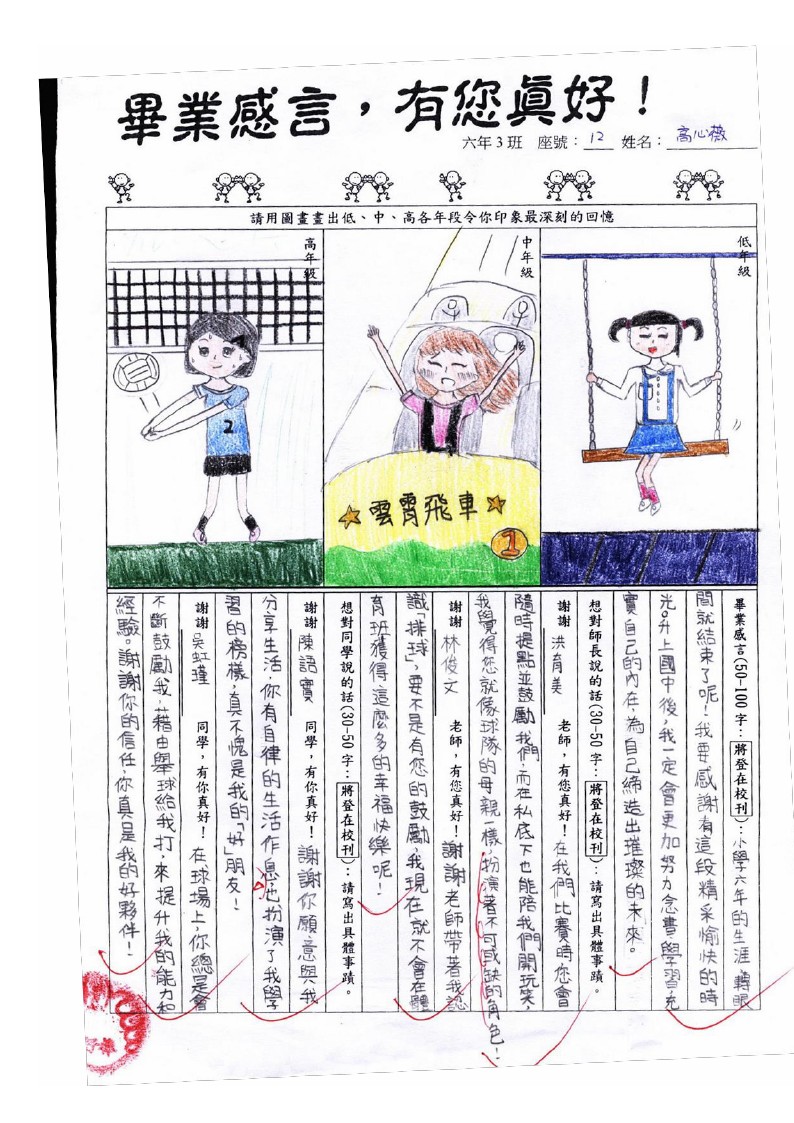 畢業感言，有您真好！
六年3班 座號：12 姓名：高心薇
請用圖畫畫出低、中、高各年段令你印象最深刻的回憶
低年級
中年級
高年級
2
雲霄飛車
1
畢業感言(50-100字：將登在校刊)：小學六年的生涯，轉眼
間就結束了呢！我要感謝有這段精采愉快的時
光。升上國中後，我一定會更加努力念書、學習，充
實自己的內在，為自己締造出璀璨的未來。
想對師長說的話(30-50字：將登在校刊)：請寫出具體事蹟。
謝謝 洪育美 老師，有您真好！在我們比賽時您會
隨時提點並鼓勵我們，而在私底下也能陪我們開玩笑，
我覺得您就像球隊的母親一樣，扮演著不可或缺的角色！
謝謝 林俊文 老師，有您真好！謝謝老師帶著我認
識排球，要不是有您的鼓勵，我現在就不會在體
育班獲得這麼多的幸福快樂呢！
想對同學說的話(30-50字：將登在校刊)：請寫出具體事蹟。
謝謝 陳語寶 同學，有你真好！謝謝你願意與我
分享生活，你有自律的生活作息，也扮演了我學
習的榜樣，真不愧是我的「好」朋友！
謝謝 吳虹瑾 同學，有你真好！在球場上，你總是會
不斷鼓勵我，藉由舉球給我打，來提升我的能力和
經驗。謝謝你的信任，你真是我的好夥伴！